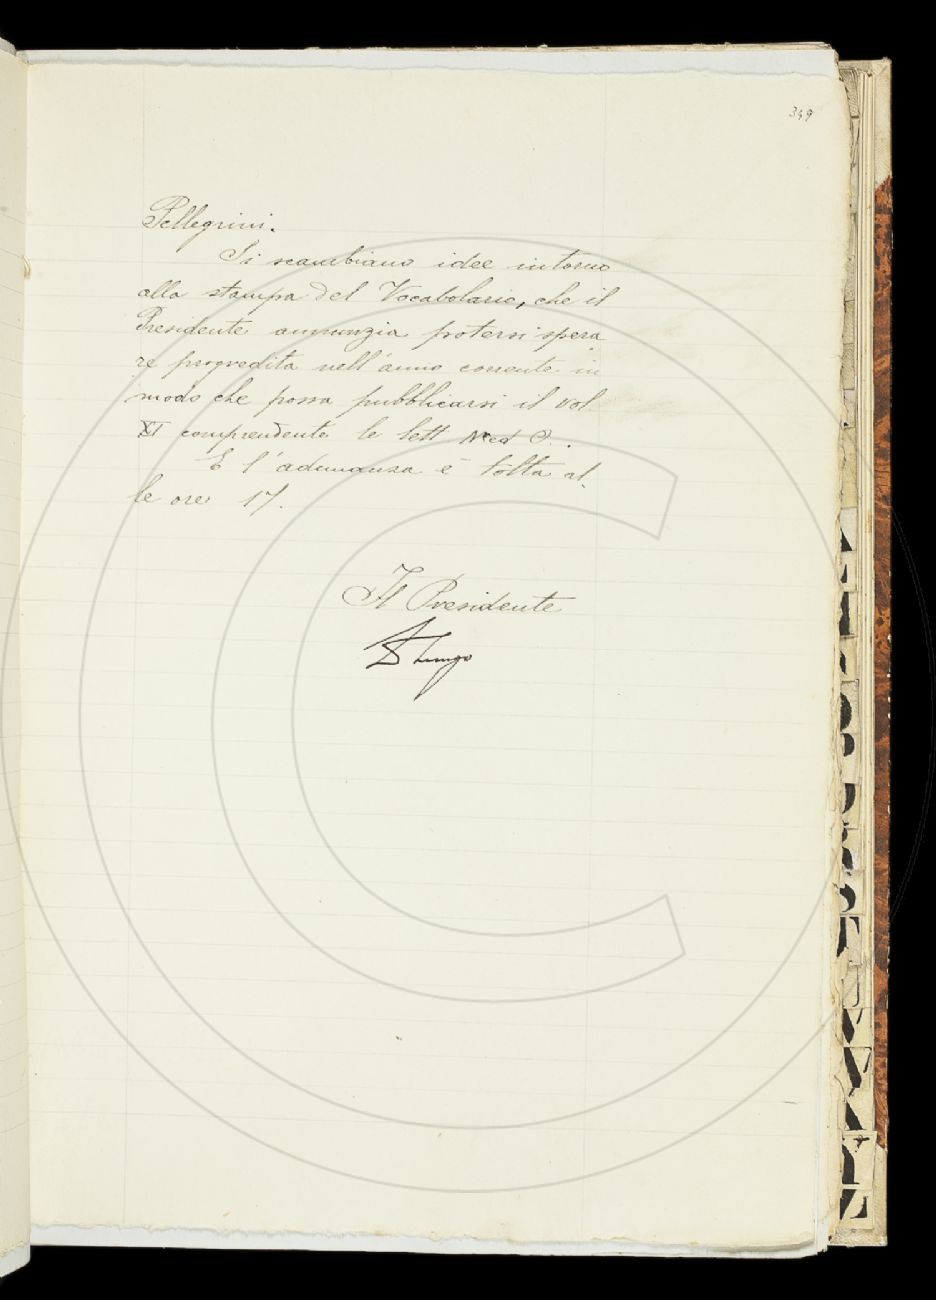 349
Pellegrini.
Si scambiano idee intorno
alla stampa del Vocabolario, che il
Presidente annunzia potersi spera
re progredita nell'anno corrente in
modo che possa pubblicarsi il vol.
XI comprendente le lett. N ed O.
E l'adunanza è tolta al-
le ore 17.
Il Presidente